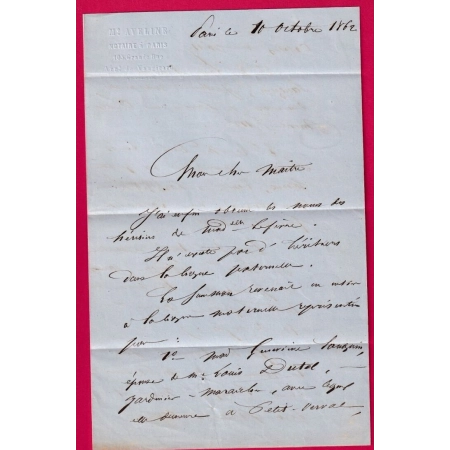 Paris le 10 Octobre 1862
Mon cher Maître
J'ai enfin obtenu les noms des
héritiers de Mad^elle Lefèvre.
Il n'existe pas d'héritiers
dans la ligne paternelle.
La succession revenait en entier
à la ligne maternelle représentée
par :
1° Mad
épouse de Mr Louis Dutel,
jardinier-maraicher, avec lequel
elle demeure à Petit-